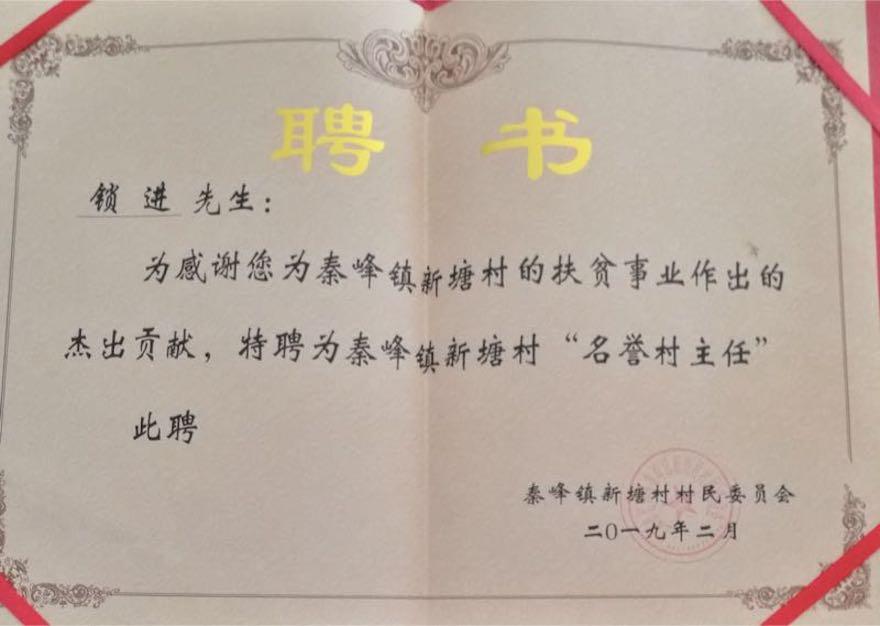 聘书
锁进先生：
为感谢您为秦峰镇新塘村的扶贫事业作出的
杰出贡献，特聘为秦峰镇新塘村“名誉村主任”
此聘
秦峰镇新塘村村民委员会
二〇一九年二月